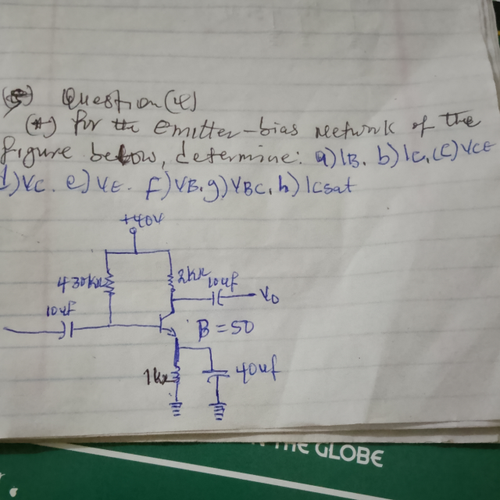 Question (4)
(*) for the Emitter-bias network of the
figure below, determine: a) IB. b) IC, (C) VCE
d) VC. e) VE. f) VB. g) VBC, h) ICsat
+40V
430kΩ
2kΩ
10uf
10uf
Vo
B = 50
1kΩ
40uf
THE GLOBE